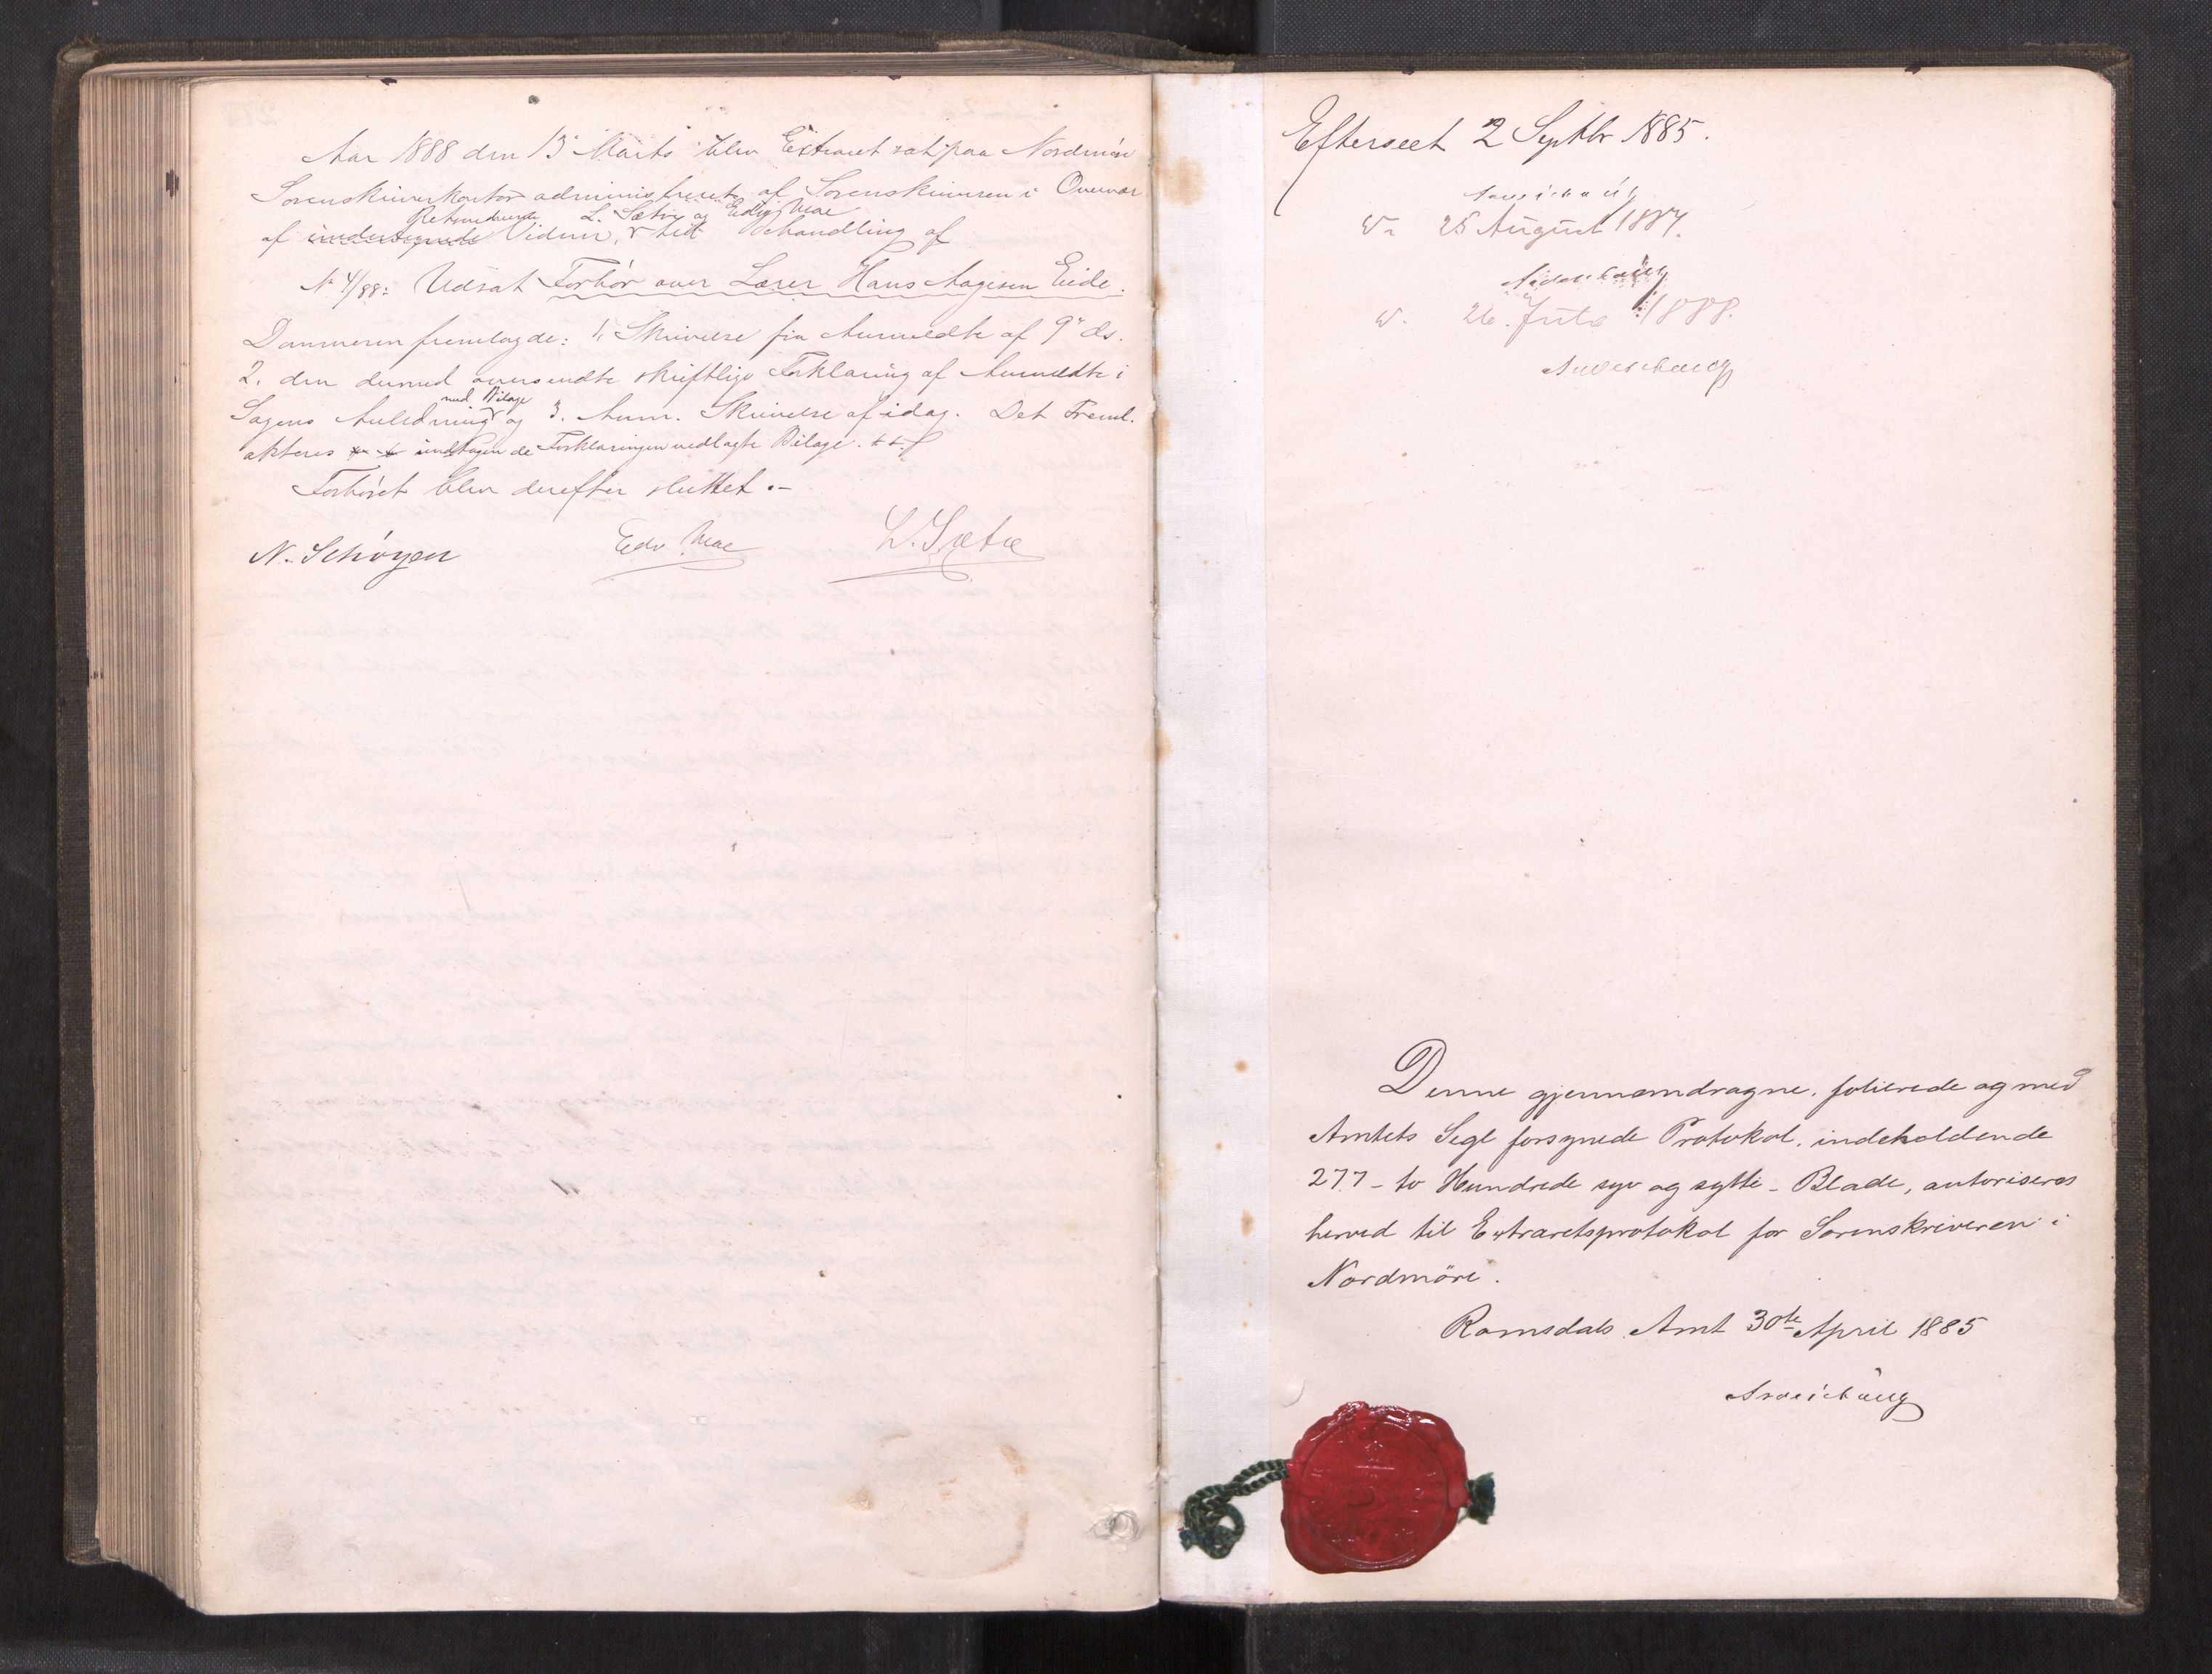 Aar 1888 den 13 Marts blev Extraret sat paa Nordmöre
Sorenskriverkontor administreret af Sorenskriveren i Overvær
af undertegnede Retsvidner L. Sætre og Edv. Moe Vidner, ved Behandling af
No 4/88: Udsat Forhör over Lærer Hans Aagesen Eide.
Dommeren fremlagde: 1, Skrivelse fra Anmeldte af 9de ds.
2. den dermed oversendte skriftlige Forklaring af Anmeldte i
Sagens Anledning med Bilage og 3. Anm. Skrivelse af idag. Det Freml.
akteres indtagen de Forklaringen vedlagte Bilage.
Forhöret blev derefter sluttet.-
N. Schöyen Edv Moe L. Sætre
Efterseet 2 Septbr 1885.
25 August 1887.
26. Juli 1888.
Denne gjennemdragne, folierede og med
Amtets Segl forsynede Protokol, indeholdende
277 - to Hundrede syv og sytti - Blade, autoriseres
herved til Extraretsprotokol for Sorenskriveren i
Nordmöre.
Romsdals Amt 30te April 1885